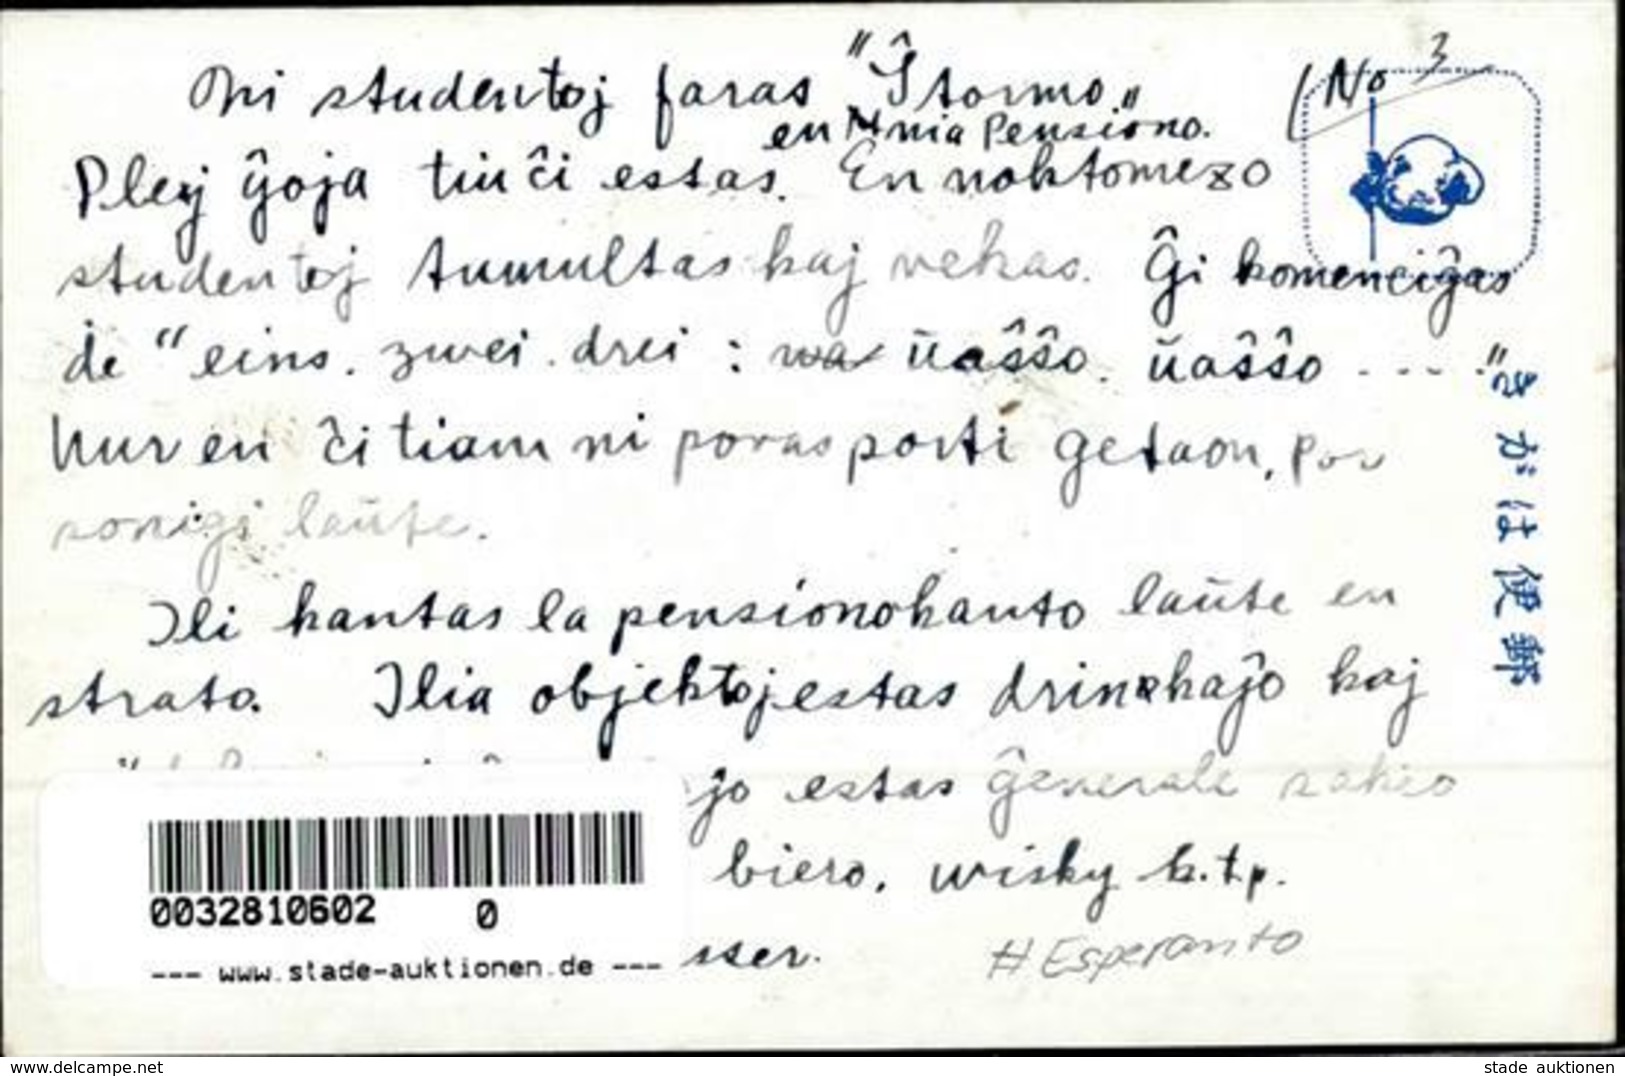 (No 3
Ni studentoj faras "Ŝtormo„
en nia Pensiono.
Plej ĝoja tiu ĉi estas. En noktomezo
studentoj tumultas kaj vekas. Ĝi komenciĝas
de "eins. zwei. drei : ŭaŝŝo. ŭaŝŝo ...."
Nur en ĉi tiam ni povas porti getaon, por
sonigi laŭte.
Ili kantas la pensionokanto laŭte en
strato. Ilia objektoj estas drinkaĵo kaj
ĵo estas ĝenerale sakeo
biero, wisky k.t.p.
sser.
#Esperanto
きがは便郵
0032810602 0
--- www.stade-auktionen.de ---
www.delcampe.net
stade auktionen